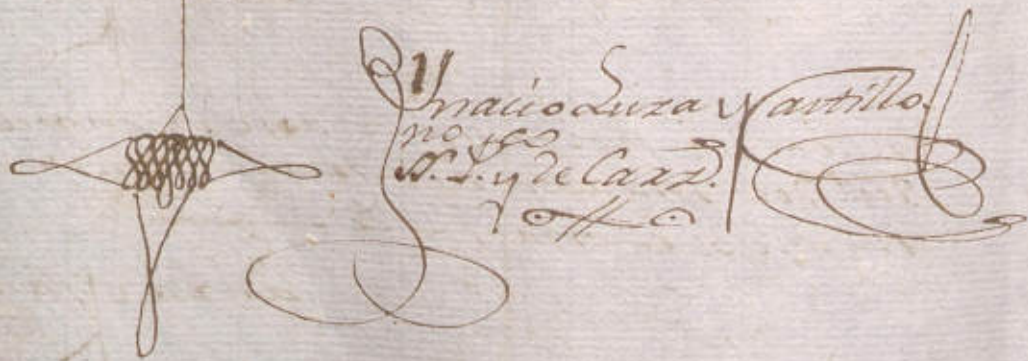 Ynacio Luza y Castillo
no pco
SS. P. y de Caxz.